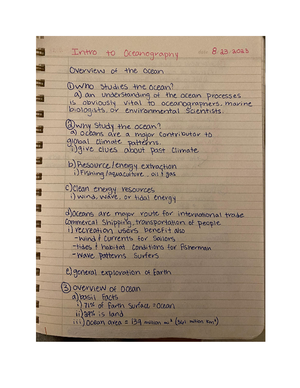 Intro to Oceanography 8.23.2023
Overview of the ocean
① Who studies the ocean?
a) an understanding of the ocean processes
is obviously vital to oceanographers, marine
biologists or environmental scientists.
② Why study the ocean?
a) oceans are a major contributor to
global climate patterns.
i) give clues about past climate
b) Resource/energy extraction
i) Fishing/aquaculture, oil & gas
c) Clean energy resources
i) wind, wave, or tidal energy
d) Oceans are major route for international trade
commercial shipping, transportation of people
i) recreation users benefit also
- wind & currents for sailors
- tides & habitat conditions for fisherman
- wave patterns surfers
e) general exploration of Earth
③ overview of Ocean
a) basic facts
i) 71% of Earth surface = ocean
ii) 29% is land
iii) Ocean area = 139 million m² (361 million km²)